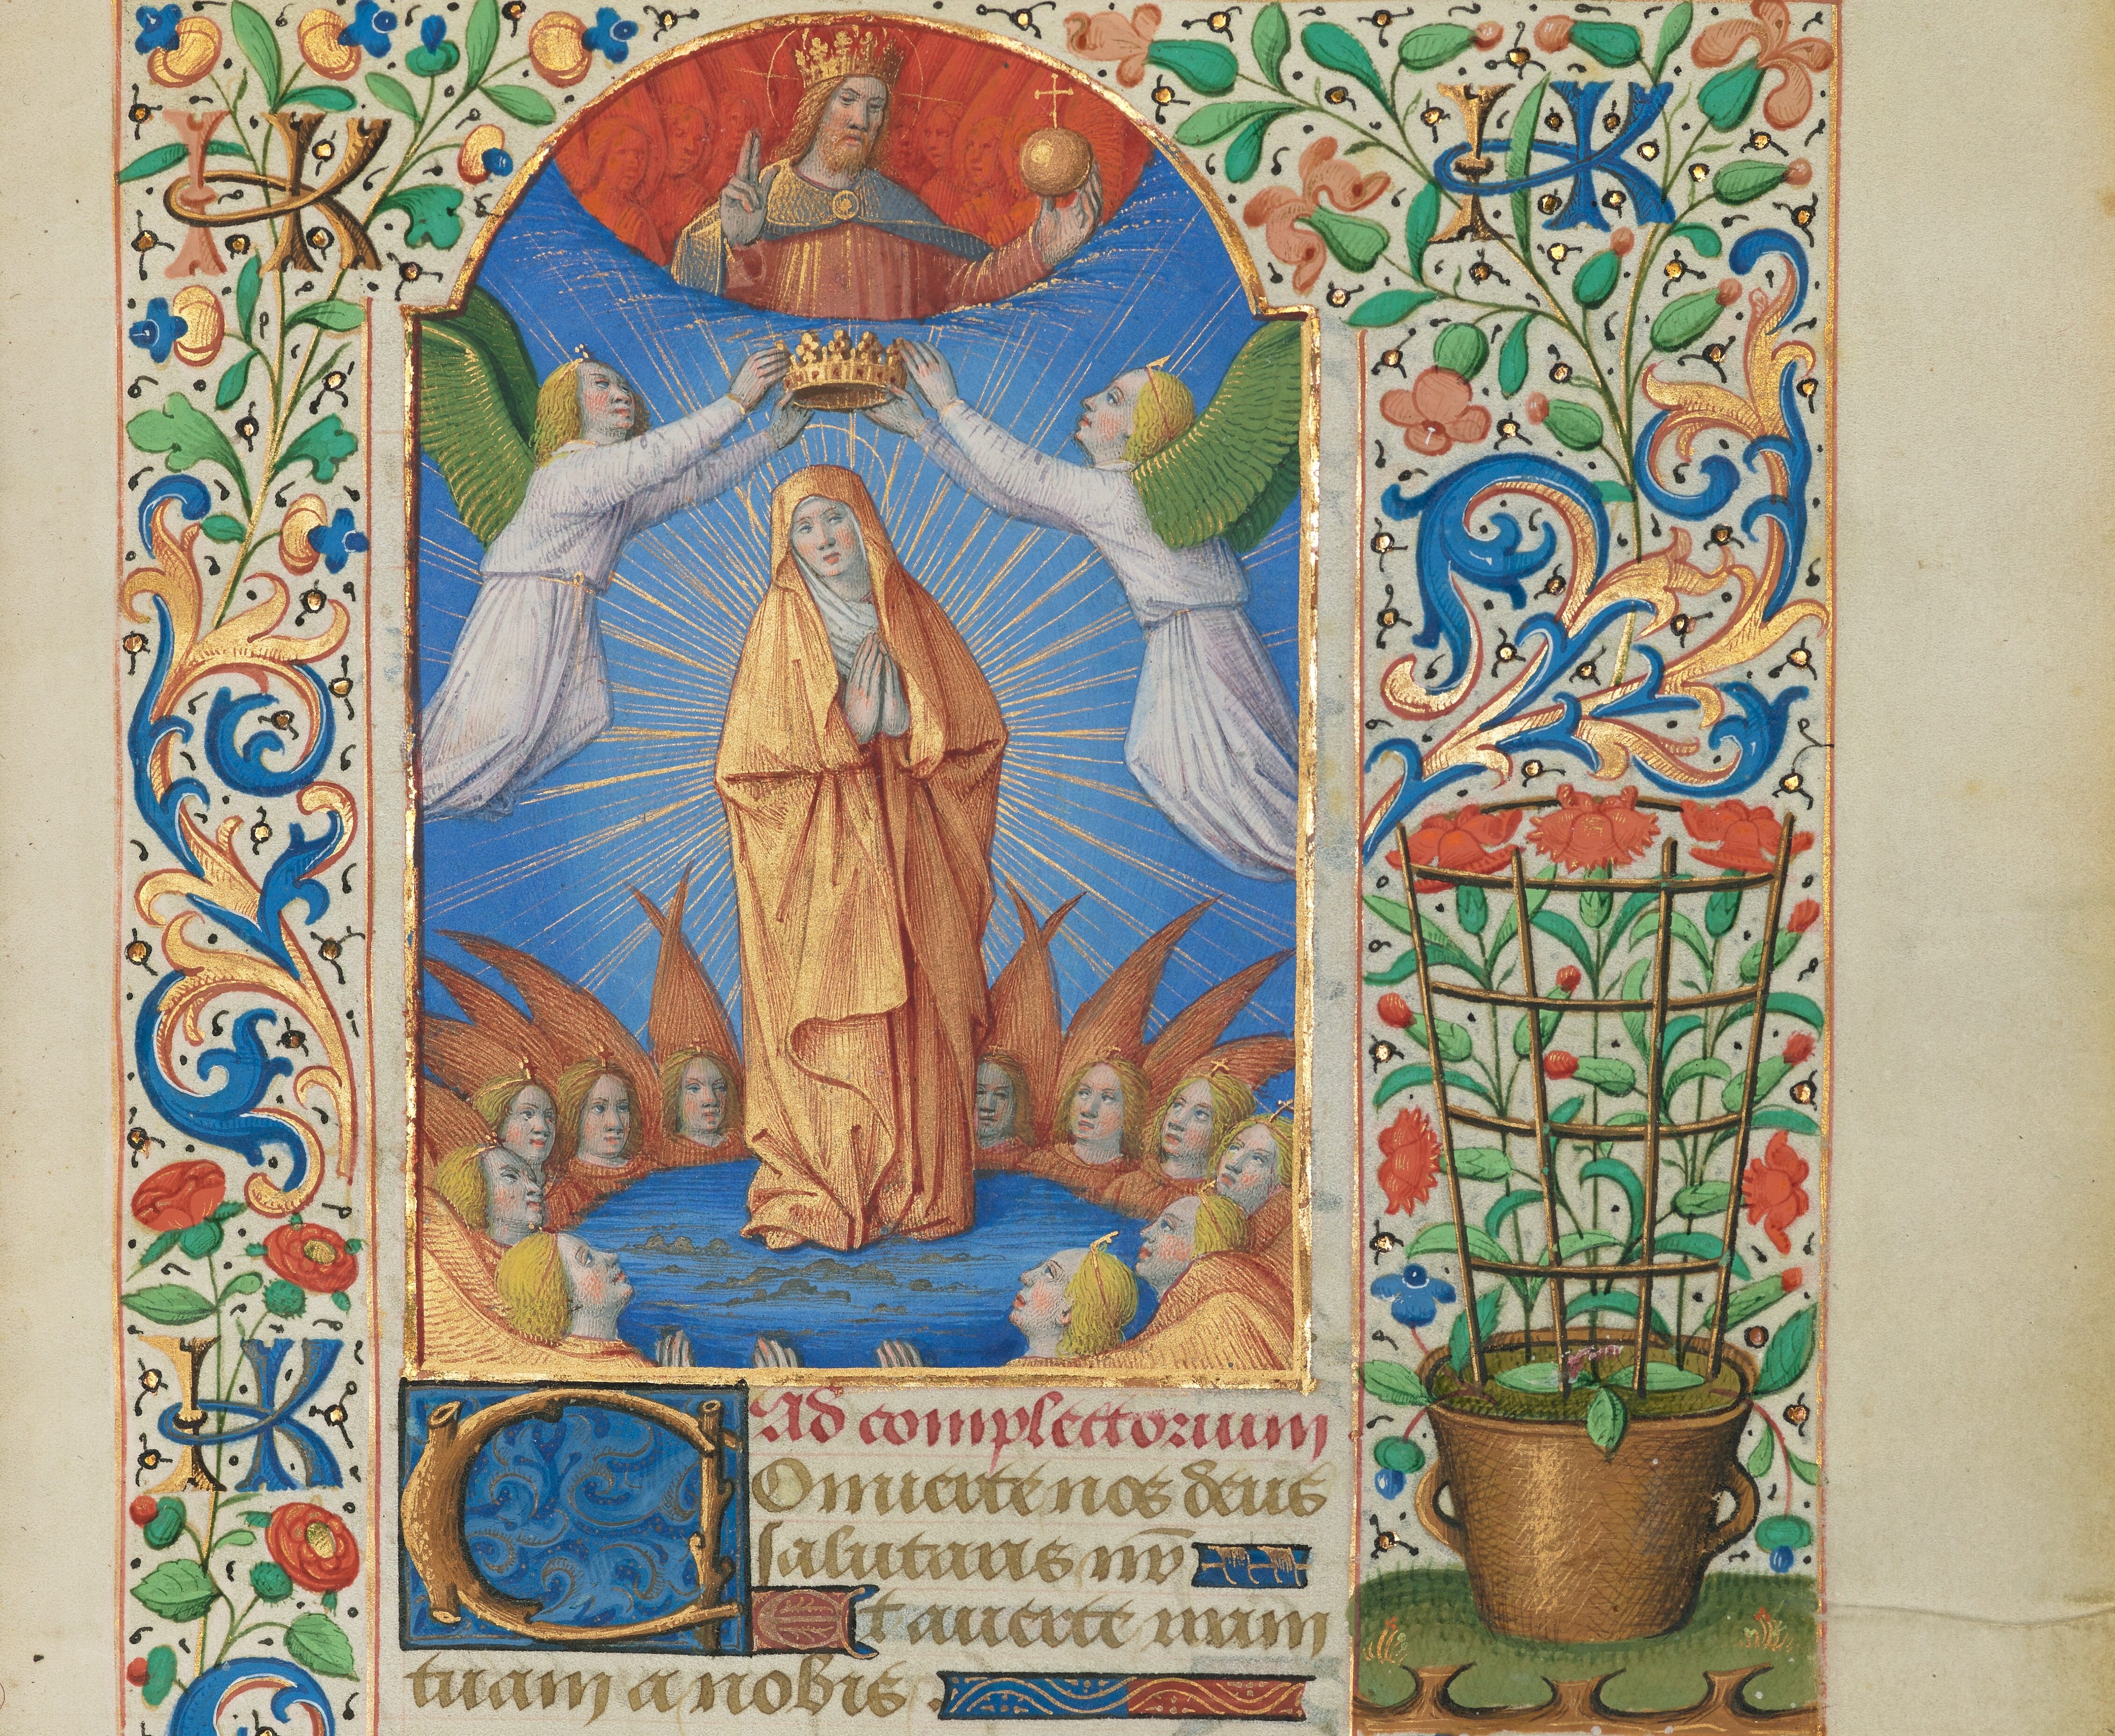 IK
IK
Ad complectorium
COnuerte nos deus
salutaris nr̄
Et auerte iram
tuam a nobis .
IK